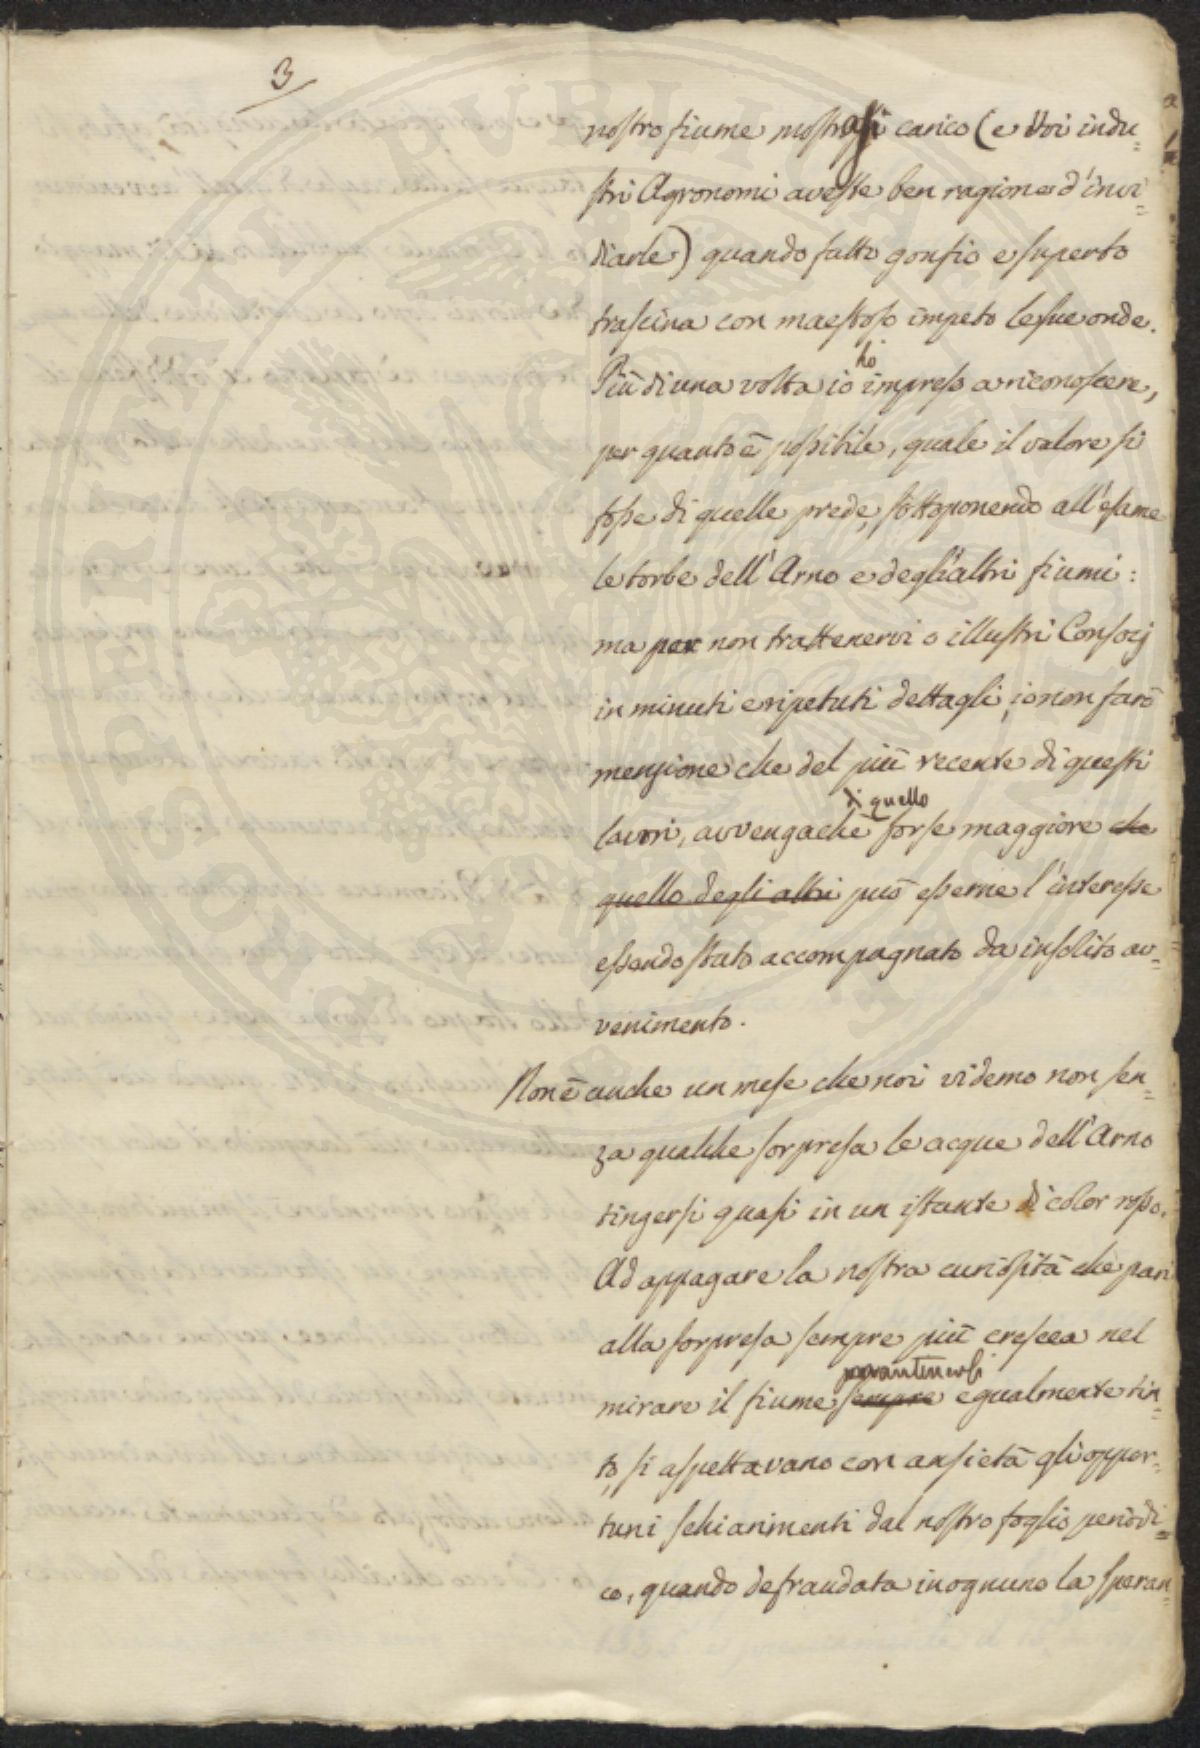 3
nostro fiume mostrasi carico (e Voi indu=
stri Agronomi aveste ben ragione d'invi=
diarle) quando fatto gonfio e superbo
trascina con maestoso impeto le sue onde.
Più di una volta io hò impreso a riconoscere,
per quanto è possibile, quale il valore si
fosse di quelle prede, sottoponendo all'esame
le torbe dell'Arno e degli altri fiumi:
ma per non trattenervi o illustri Consocj
in minuti e ripetuti dettagli, io non farò
menzione che del più recente di questi
lavori, avvengachè di quello forse maggiore che
quello degli altri può esserne l'interesse
essendo stato accompagnato da insolito av=
venimento.
Non è anche un mese che noi videmo non sen=
za qualche sorpresa le acque dell'Arno
tingersi quasi in un istante di color rosso.
Ad appagare la nostra curiosità che pari
alla sorpresa sempre più crescea nel
mirare il fiume sempre mantenersi egualmente tin=
to, si aspettavano con ansietà gli oppor=
tuni schiarimenti dal nostro foglio periodi=
co, quando defraudata in ognuno la speran=